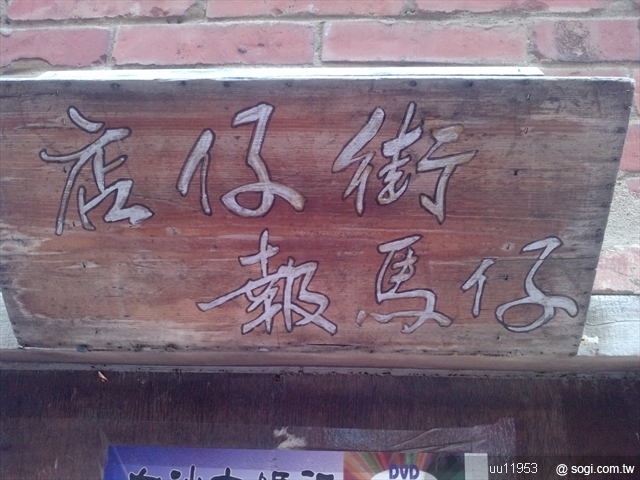 店仔街
報馬仔
DVD
uu11953 @ sogi.com.tw